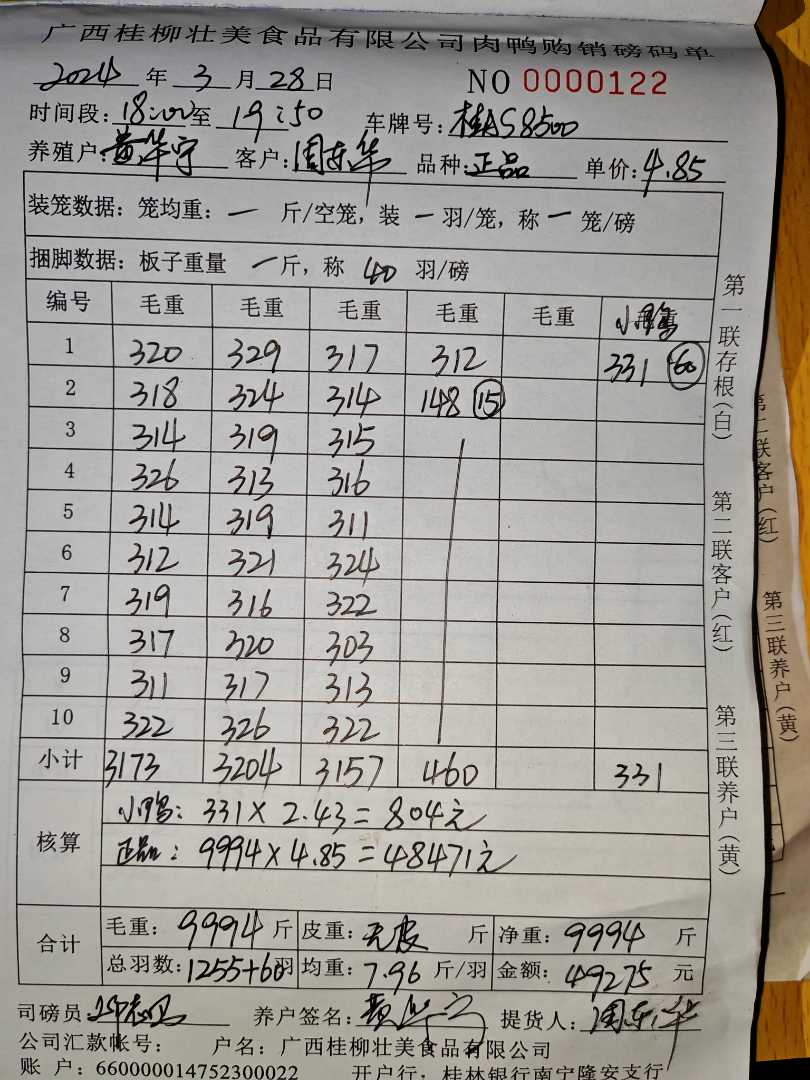 广西桂柳壮美食品有限公司肉鸭购销磅码单
2024 年 3 月 28 日 NO 0000122
时间段: 18:00 至 19:50 车牌号: 桂AS8500
养殖户: 黄华宁 客户: 周东华 品种: 正品 单价: 4.85
装笼数据: 笼均重: 一 斤/空笼, 装 一 羽/笼, 称 一 笼/磅
捆脚数据: 板子重量 一 斤, 称 40 羽/磅
编号 毛重 毛重 毛重 毛重 毛重 小鸭
1 320 329 317 312 331 60
2 318 324 314 148 15
3 314 319 315
4 326 313 316
5 314 319 311
6 312 321 324
7 319 316 322
8 317 320 303
9 311 317 313
10 322 326 322
小计 3173 3204 3157 460 331
核算
小鸭: 331 × 2.43 = 804元
正品: 9994 × 4.85 = 48471元
合计
毛重: 9994 斤 皮重: 无皮 斤 净重: 9994 斤
总羽数: 1255+60 羽 均重: 7.96 斤/羽 金额: 49275 元
司磅员 养户签名: 黄华宁 提货人: 周东华
公司汇款帐号: 户名: 广西桂柳壮美食品有限公司
账 户: 660000014752300022 开户行: 桂林银行南宁隆安支行
第一联存根(白)
第二联客户(红)
第三联养户(黄)
第二联客户(红)
第三联养户(黄)